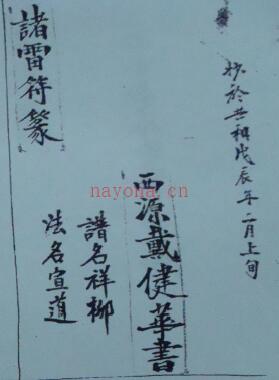 抄於共和戊辰年二月上旬
西源戴健華書
譜名祥柳
法名宣道
諸雷符篆
nayona.cn